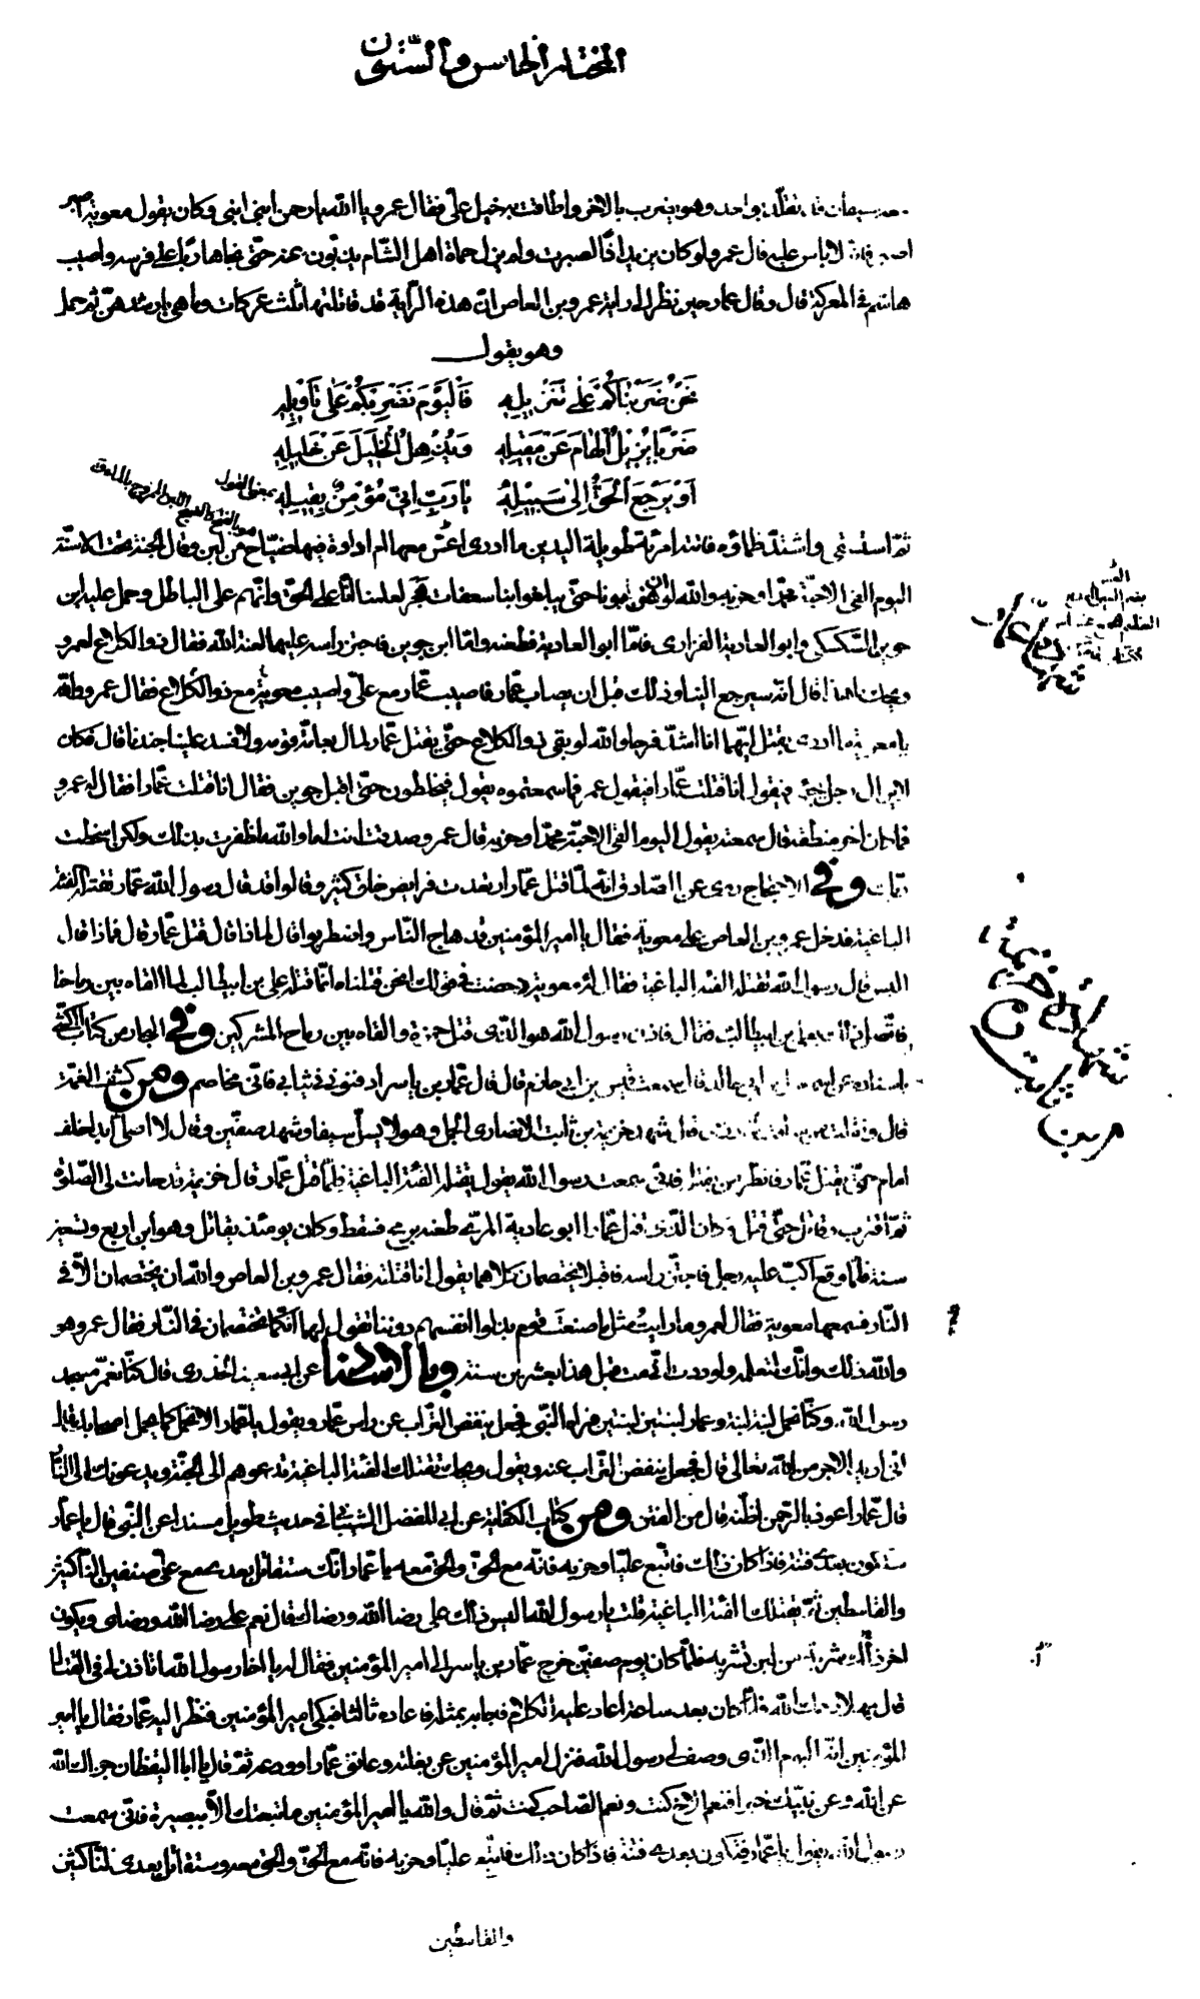 المختار الخامس والستون
سيفان قد تقلد بواحد وهو يضرب بالآخر واطافت به خيل علىّ فقال عمرو يا الله يا رحمن ابنى ابنى وكان يقول معوية اصبر
اصبر فانه لا باس عليه قال عمرو لو كان يزيد اذًا لصبرت ولم يزل حماة اهل الشّام يذبّون عنه حتّى نجا هاربًا على فرسه واصيب
هاشم فى المعركة قال وقال عمار حين نظر الى راية عمرو بن العاص انّ هذه الرّاية قد قاتلتها ثلث عركات وما هى بارشدهنّ ثم حمل
وهو يقول
نَحْنُ ضَرَبْنَاكُمْ عَلى تَنْزِيلِهِ فَالْيَوْمَ نَضْرِبُكُمْ عَلى تَأوِيلِهِ
ضَرْبًا يُزِيلُ الْهَامَ عَنْ مَقِيلِهِ وَيُذْهِلُ الْخَلِيلَ عَنْ خَلِيلِهِ
اَوْ يَرْجِعَ الْحَقُّ اِلى سَبِيلِهِ يَا رَبِّ اِنّى مُؤْمِنٌ بِقِيلِهِ
بمعنى القول
هو بالفتح اللبن الممزوج بالماء ق
ثمّ استسقى واشتدّ ظماؤه فاتته امرئة طويلة اليدين ما ادرى اعُسّ معها ام اداوة فيها ضيّاح من لبن وقال الجنّة تحت الاسنّة
اليوم القى الاحبّة محمّدا وحزبه والله لو ضربونا حتّى يبلغوا بنا سعفات هجر لعلمنا انّا على الحقّ وانّهم على الباطل وحمل عليه ابن
جوين السّكسكى وابو العادية الفزارى فامّا ابو العادية فطعنه وامّا ابن جوين فاحتز راسه عليهما لعنة الله فقال ذو الكلاع لعمرو
ويحك ما هذا قال انّه سيرجع الينا وذلك قبل ان يصاب عمّار فاصيب عمّار مع علىّ واصيب معوية مع ذو الكلاع فقال عمرو والله
يا معوية ما ادرى بقتل ايّهما انا اشدّ فرحا والله لو بقى ذو الكلاع حتّى يقتل عمّار لمال بعامّة قومه ولافسد علينا جندنا قال فكان
لا يزال رجل يجئ فيقول انا قتلت عمّارا فيقول عمرو فما سمعتموه يقول فيخلطون حتّى اقبل جوين فقال انا قتلت عمّارا فقال له عمرو
فما كان اخر منطقه قال سمعته يقول اليوم القى الاحبّة محمّدا وحزبه قال عمرو صدقت انت اما والله ما ظفرت بذلك ولكن اسخطت
ربّك وفى الاحتجاج روى عن الصّادق انّه لمّا قتل عمّار ارتعدت فرايص خلق كثير وقالوا قد قال رسول الله عمّار تقتله الفئة
الباغية فدخل عمرو بن العاص على معوية فقال يا امير المؤمنين قد هاج النّاس واضطربوا قال لماذا قال قتل عمّار قال فماذا قال
اليس قال رسول الله تقتله الفئة الباغية فقال له معوية دحضت فى قولك انحن قتلناه انّما قتله علىّ بن ابيطالب لما القاه بين رماحنا
فاتّصل ذلك بعلى بن ابيطالب فقال فاذن رسول الله هو الّذى قتل حمزة والقاه بين رماح المشركين وفى البحار من كتاب الكشّى
باسناده عن اسمعيل بن ابى خالد قال سمعت قيس بن ابى حازم قال قال عمّار بن ياسر ادفنونى فى ثيابى فانّى مخاصم ومن كشف الغمّة
شهد خزيمة بن ثابت الانصارى الجمل وهو لا يسلّ سيفا وشهد صفّين وقال لا اصلى ابدا خلف
امام حتّى يقتل عمّار فانظر من يقتله فانّى سمعت رسول الله يقول يقتله الفئة الباغية فلمّا قتل عمّار قال خزيمة قد حانت لى الصّلوة
ثمّ اقترب وقاتل حتّى قتل وكان الّذى قتل عمّارا ابو عادية المرّى طعنه برمح فسقط وكان يومئذ يقاتل وهو ابن اربع وتسعين
سنة فلمّا وقع اكبّ عليه رجل فاحتزّ راسه فاقبلا يختصمان كلاهما يقول انا قتلته فقال عمرو بن العاص والله ان يختصمان الّا فى
النّار فسمعها معوية فقال لعمرو ما رايتُ مثل ما صنعت قوم بذلوا انفسهم دوننا تقول لهما انّكما تختصمان فى النّار فقال عمرو هو
والله ذلك وانّك لتعلمه ولوددت انّى مت قبل هذا بعشرين سنة وبالاسناد عن ابى سعيد الخدرى قال كنّا نعمّر مسجد
رسول الله وكنّا نحمل لبنة لبنة وعمار لبنتين لبنتين فراه النّبى فجعل ينفض التّراب عن راس عمّار ويقول يا عمّار الا تحمل كما يحمل اصحابك قال
انّى اريد الاجر من الله تعالى قال فجعل ينفض التّراب عنه ويقول ويحك تقتلك الفئة الباغية تدعوهم الى الجنّة ويدعونك الى النّار
قال عمّار اعوذ بالرّحمن اظنّه قال من الفتن ومن كتاب الكفاية عن ابى المفضل الشّيبانى فى حديث طويل مسندا عن النّبى قال يا عمّار
ستكون بعدى فتنة فاذا كان ذلك فاتّبع عليّا وحزبه فانّه مع الحقّ والحقّ معه يا عمّار انّك ستقاتل بعدى مع علىّ صنفين النّاكثين
والقاسطين ثمّ يقتلك الفئة الباغية قلت يا رسول الله اليس ذلك على رضا الله ورضاك قال نعم على رضا الله ورضاى ويكون
اخر زادك شربة من لبن تشربه فلمّا كان يوم صفّين خرج عمّار بن ياسر الى امير المؤمنين فقال له يا اخا رسول الله اتاذن لى فى القتال
قال مهلا رحمك الله فلمّا كان بعد ساعة اعاد عليه الكلام فاجابه بمثله فاعاده ثالثا فبكى امير المؤمنين فنظر اليه عمّار فقال يا امير
المؤمنين انّه اليوم الّذى وصف لى رسول الله فنزل امير المؤمنين عن بغلته وعانق عمّارا وودعه ثمّ قال يا ابا اليقظان جزاك الله
عن الله وعن نبيّك خيرا فنعم الاخ كنت ونعم الصّاحب كنت ثمّ قال والله يا امير المؤمنين ما تبعتك الّا ببصيرة فانّى سمعت
رسول الله يقول يا عمّار ستكون بعدى فتنة فاذا كان ذلك فاتّبع عليّا وحزبه فانّه مع الحقّ والحق معه وستقاتل بعدى النّاكثين
والقاسطين
شهادة عمار
شهادة خزيمة
بن ثابت